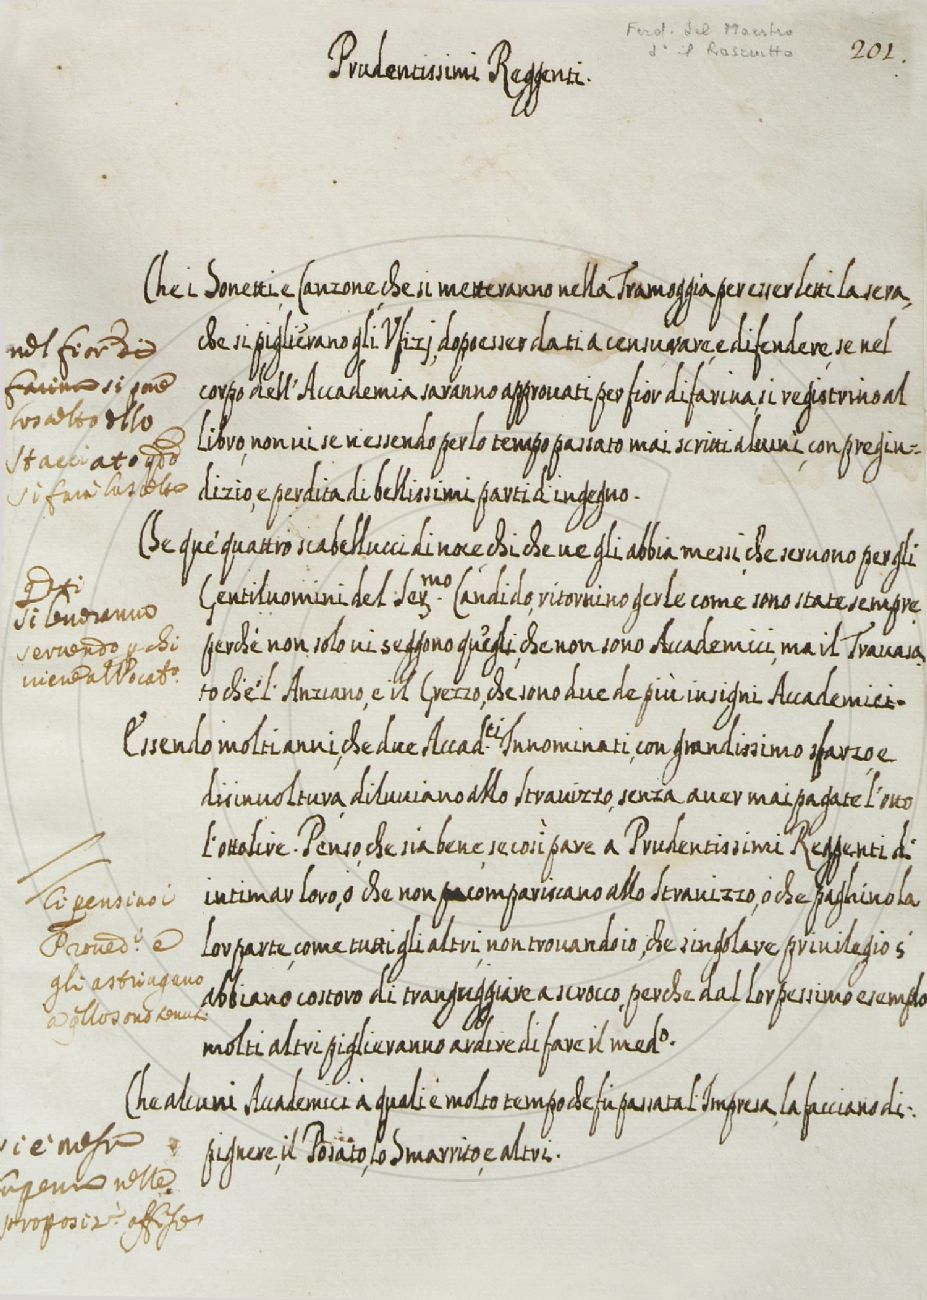 Ferd. del Maestro
d° il Rasciutto
201.
Prudentissimi Reggenti.
Che i Sonetti, e Canzone, che si metteranno nella Tramoggia per esser letti la sera,
che si piglierano gli Vfizj, dopo esser dati a censurare, e difendere, se nel
corpo dell' Accademia saranno approuati per fior di farina, si registrino al
libro, non ui se n'essendo per lo tempo passato mai scritti alcuni, con pregiu-
dizio, e perdita di bellissimi parti d'ingegno.
nel fior di
farina si
lo scelto dello
stacciato
si farà la scelta
Che que' quattro scabellucci di noce chi che ue gli abbia messi, che seruono per gli
Gentiluomini del Ser.mo Candido, ritornino gerle come sono state sempre,
perchè non solo ui seggono quegli, che non sono Accademici, ma il Trauasa
to ch'è l' Anziano, e il Grezzo, che sono due de più insigni Accademici.
si lenranno
seruendo p chi
uiene
Essendo molti anni, che due Accad.ti Innominati, con grandissimo sfarzo, e
disinuoltura, diluuiano allo Strauizzo, senza auer mai pagate l'otto
l'ottolire. Penso, che sia bene, se così pare a Prudentissimi Reggenti di
intimar loro, ò che non compariscano allo Strauizzo, ò che paghino la
lor parte, come tutti gli altri, non trouando io, che singolare priuilegio s'
abbiano costoro di trangugiare a scrocco, perche dal lor pessimo esempio
molti altri piglieranno ardire di fare il med.o
Ci pensino i
Proued.i e
gli astringano
a qllo sono tenuti
Che alcuni Accademici à quali è molto tempo che fù passata l'Impresa, la facciano di-
pignere, il Posato, lo Smarrito, e altri.
si è
nelle
proposiz.i affisse